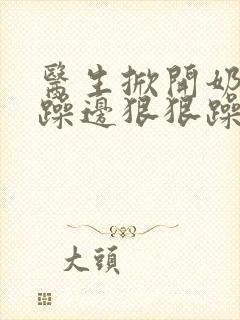 醫生掀開奶
躁邊狠狠躁
大頭